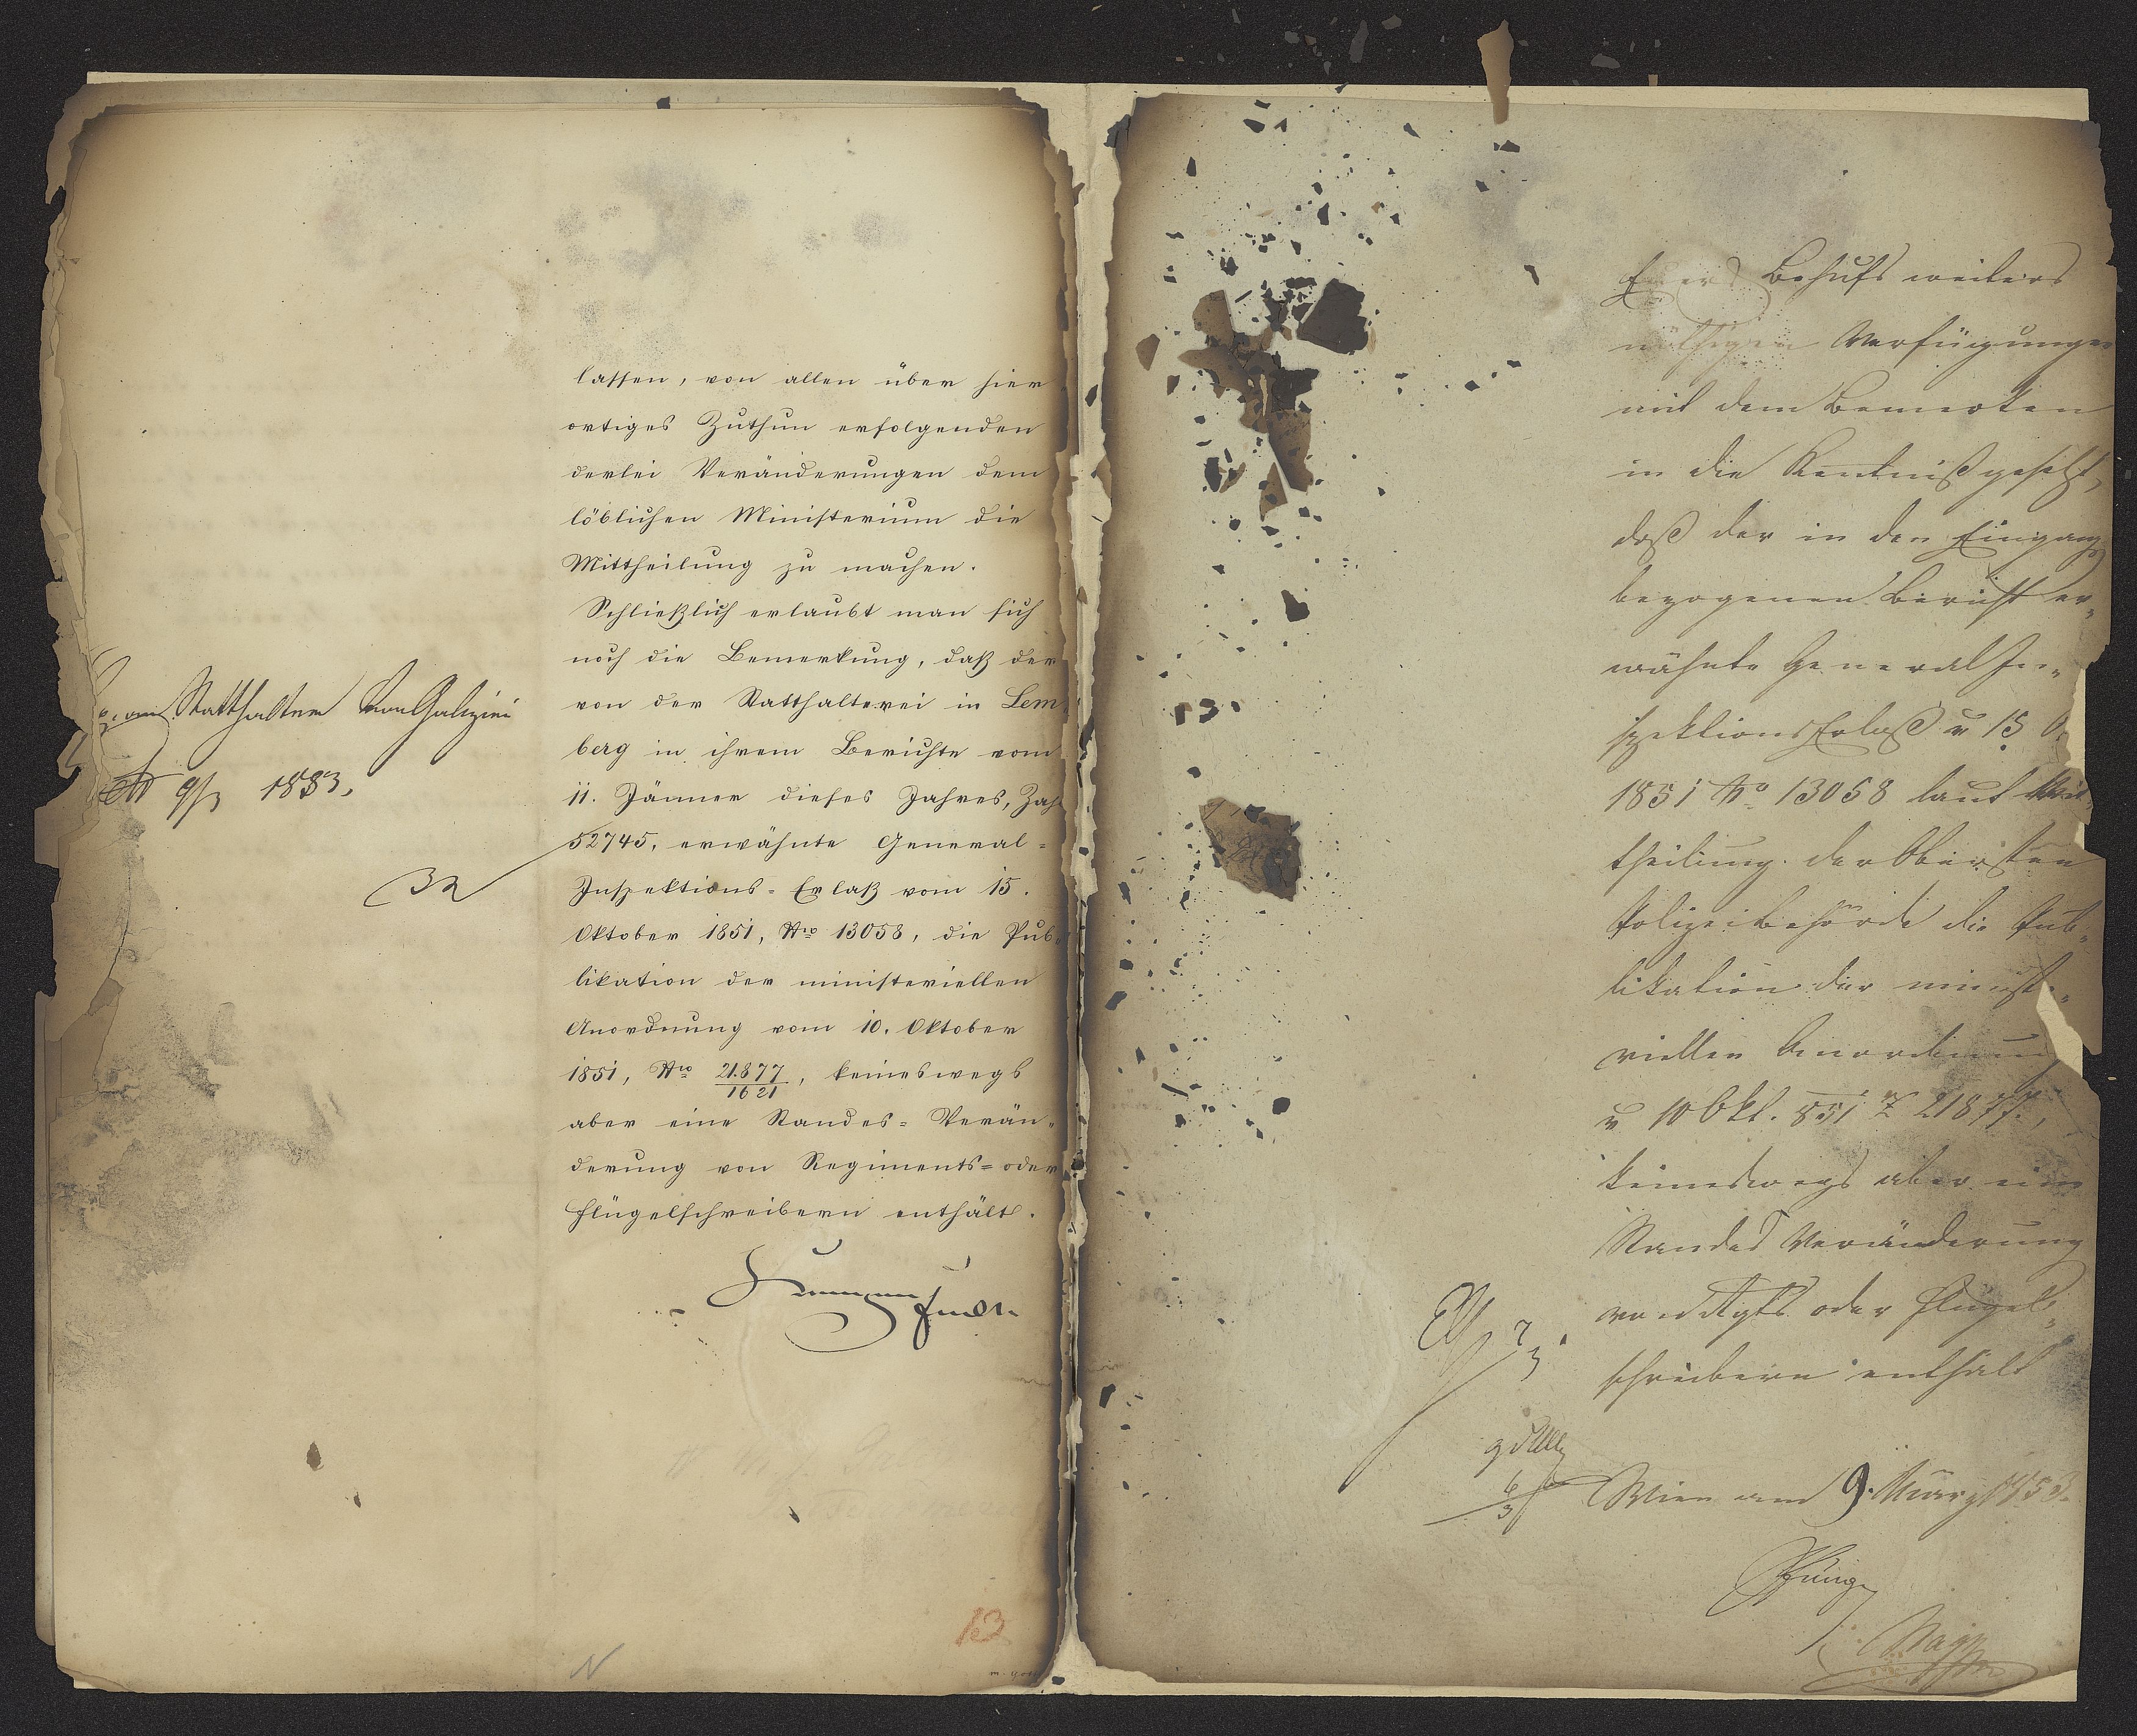 lassen, von allen über hier
ortiges Zuthun erfolgenden
derlei Veränderungen dem
löblichen Ministerium die
Mittheilung zu machen.
Schließlich erlaubt man sich
noch die Bemerkung, daß der
von der Statthalterei in Lem
berg in ihrem Berichte vom
11. Jänner dieses Jahres, Zahl
52745, erwähnte General=
Inspektions=Erlaß vom 15.
Oktober 1851, Nro 13058, die Pub
likation der ministeriellen
Anordnung vom 10. Oktober
1851, Nro 21877/1621, keineswegs
aber eine Standes=Verän=
derung von Regiments=oder
Flügelschreibern enthält.
Kempen
an Statthalter von Galizien
9/3 1853.
13
Behufs weiters
nöthigen Verfügungen
mit dem Bemerken
in die Kentniß gesetzt,
daß der in den Eingangs
bezogenen Bericht er=
wähnte General In=
spektions Erlaß v 15 O
1851 No 13058 laut Mit
theilung der Obersten
Polizeibehörde die Pub=
likation der ministe=
riellen Anordnung
v 10 Okt. 851 Z 21877,
keineswegs aber eine
Standes Veränderung
von Rgts oder Flügel=
schreibern enthält
Wien am 9. März 1853.